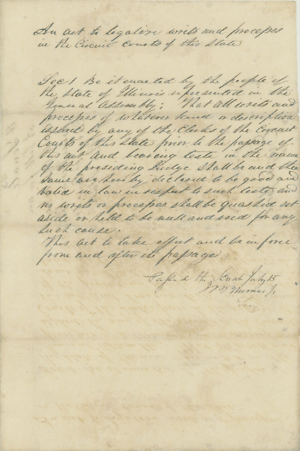 An act to legalise writs and processes
in the Circuit Courts of this State
Sec 1 Be it enacted by the people of
the State of Illinois represented in the
General Assembly; That all writs and
processes of whatever kind or description
issued by any of the Clerks of the Circuit
Courts of this State prior to the passage of
this act and bearing teste in the name
of the presiding Judge shall be and the
same are hereby declared to be good and
valid in law in respect to such teste, and
no writ or process shall be quashed set
aside or held to be null and void for any
such cause.
This act to take effect and be in force
from and after its passage